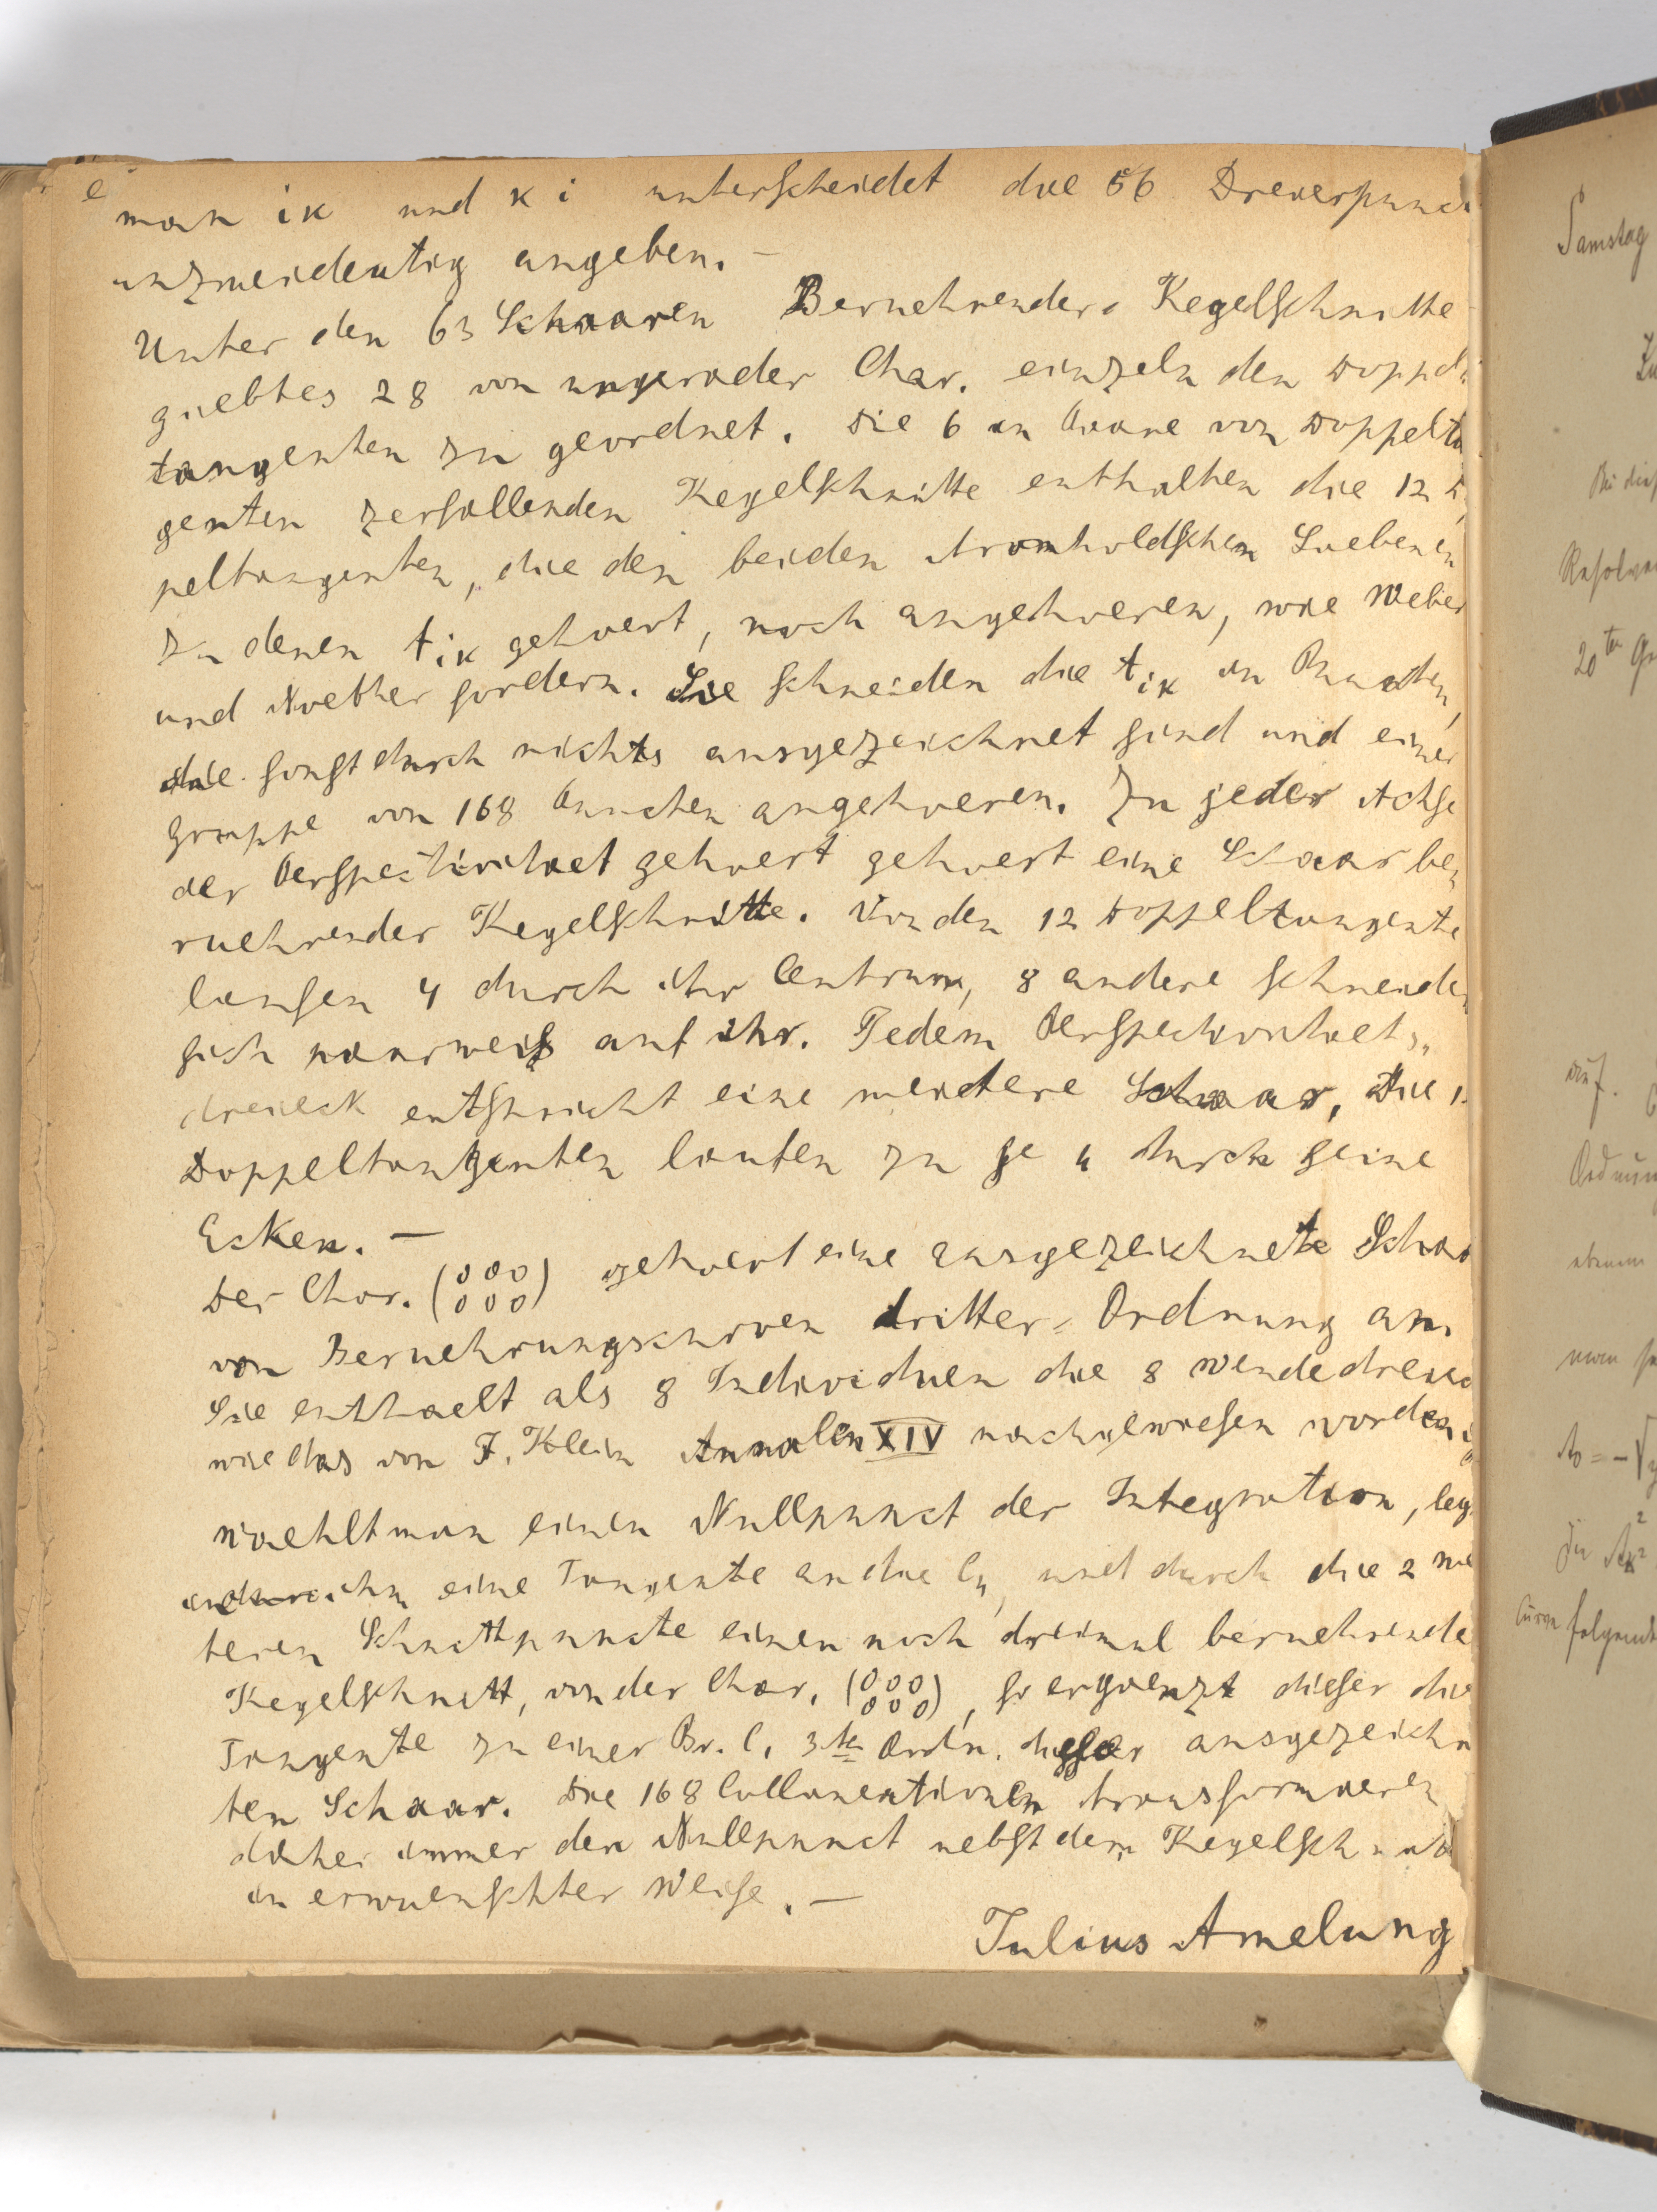 man ik und ki unterscheidet die 56 Dreierpunc
unzweideutig angeben. —
Unter den 63 Schaaren Beruehrender Kegelschnitte
giebtes 28 von ungerader Char. einzeln den Doppel
tangenten zu geordnet. Die 6 in Paare von Doppelta
genten zerfallenden Kegelschnitte enthalten die 12 D
peltangenten, die den beiden Aronholdschen Siebenen
zu denen t ik gehoert, noch angehoeren, wie Weber
und Noether fordern. Sie schneiden die t ik in Puncten,
die sonst durch nichts ausgezeichnet sind und einer
Gruppe von 168 Puncten angehoeren. Zu jeder Achse
der Perspectivitaet gehoert gehoert eine Schaar be,
ruehrender Kegelschnitte. Von den 12 Doppeltangente
laufen 4 durch ihr Centrum, 8 andere schneiden
sich paarweis auf ihr. Jedem Perspectivitaets,,
dreieck entspricht eine weitere Schaar, Die 1
Doppeltangenten laufen zu je 4 durch seine
Ecken. —
Der Char. (000 000) gehoert eine ausgezeichnete Schaa
von Beruehrungscurven dritter Ordnung an.
Sie enthaelt als 8 Individuen die 8 Wendedreiec
wie das von F. Klein Annalen XIV nachgewiesen worden
Waehlt man einen Nullpunct der Integration, leg
ihn eine Tangente an die C4, und durch die 2 wei
teren Schnittpuncte einen noch dreimal beruehrende
Kegelschnitt, von der Char. (000 000), so ergaenzt dieser die
Tangente zu einer Br. C. 3ter Ordn. dieser ausgezeichn
ten Schaar. Die 168 Collineationen transformieren
daher immer den Nullpunct nebst dem Kegelschnitt
in erwuenschter Weise. —
Julius Amelung
Samstag
Zu
Bei dies
Resolven
20ten Gr
auf.
Ordnun
ebenen
man
A0 = - √
Die
Curve folgende